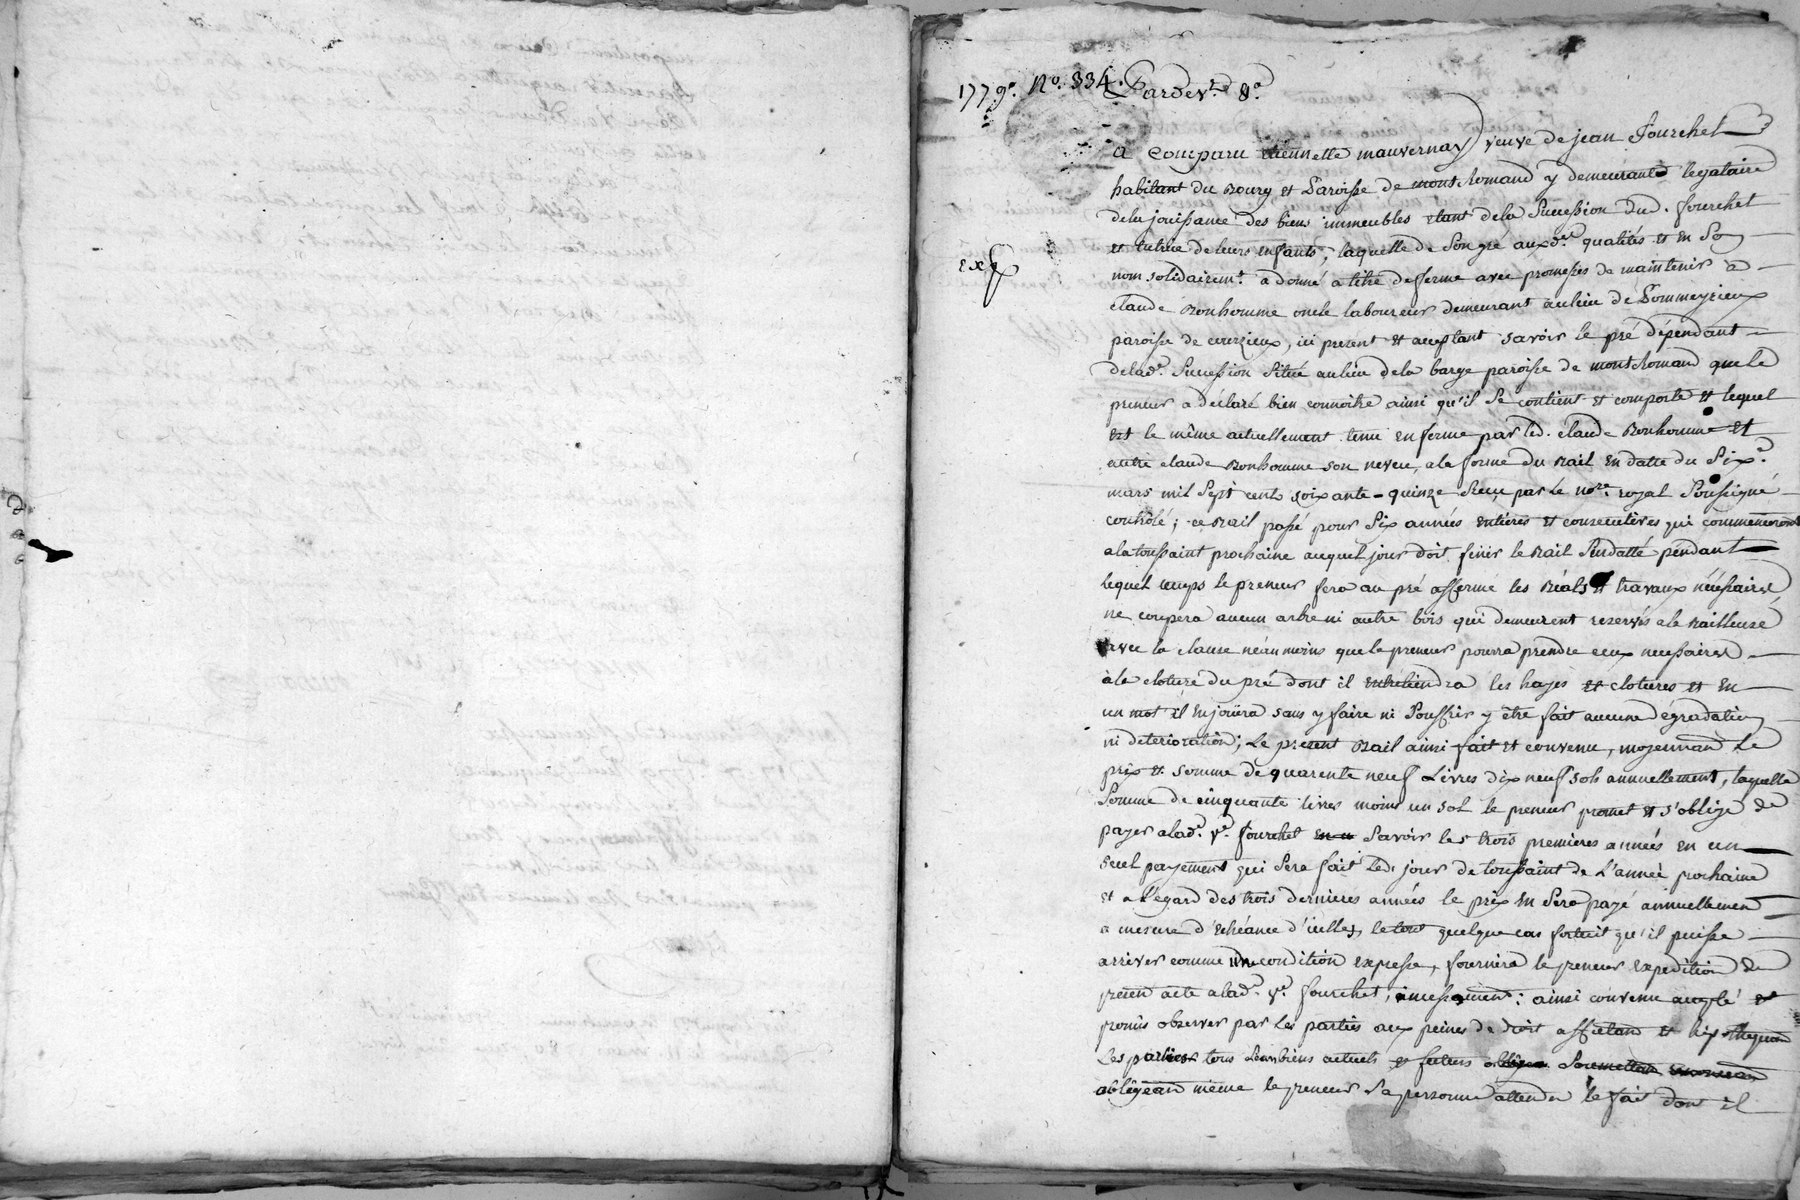 1779. No. 334. Pardevt. &a.
a comparu etiennette mauvernay veuve de jean fourchet
habitant du Bourg et Paroisse de montRomand y demeurante legataire
dela jouissance des biens immeubles etant dela Succession dud. fourchet
et tutrice de leurs enfants, laquelle de Son gré auxd. qualités et en So
exp
nom solidairemt. a donné a titre de ferme avec promesses de maintenir à
claude Bonhomme oncle laboureur demeurant aulieu de Pommeyrieux
paroisse de courzieux, ici present et acceptant savoir le pré dépendant
delad. Succession Situé aulieu dela barge paroisse de montRomand que le
preneur a déclaré bien connoitre ainsi qu'il Se contient et comporte et lequel
est le même actuellement tenu enferme par led. claude Bonhomme et
autre claude Bonhomme son neveu, ala forme du Bail en datte du Six
mars mil Sept cent soixante-quinze Recu par le nore. royal Soussigné
contrôlé; ce Bail passé pour Six années entieres et consecutives qui commenceront
alatoussaint prochaine auquel jour doit finir le Bail Susdatté pendant
lequel temps le preneur fera au pré affermé les Réals et travaux nécessaires
ne coupera aucun arbre ni autre bois qui demeurent reservés ala Bailleuse
avec la clause néanmoins que le preneur pourra prendre ceux necessaires
àla cloture du pré dont il entretiendra les hayes et clotures et en
un mot il enjouira sans y faire ni Souffrir y être fait aucune dégradation
ni deterioration; Le present Bail ainsi fait et convenu, moyennant le
prix et somme de quarente neuf Livres dix neuf sols annuellement, laquelle
Somme de cinquante livres moins un sol le preneur promet et s'oblige de
payer alad. ve. fourchet en u Savoir les trois premieres années en un
seul payement qui Sera fait led. jour de toussaint de L'année prochaine
et a l'égard des trois dernieres années le prix en Sera payé annuellement
a mesure d'échéance d'icelles, le tout quelque cas fortuit qu'il puisse
arriver comme une condition expresse, fournira le preneur expedition du
present acte alad. ve. fourchet, incessament: ainsi convenu accepté et
promis observer par les parties aux peines de droit affectant et hipothequant
les parties tous leurs biens actuels et futurs
oblégeant même le preneur Sa personne attendu le fait dont il